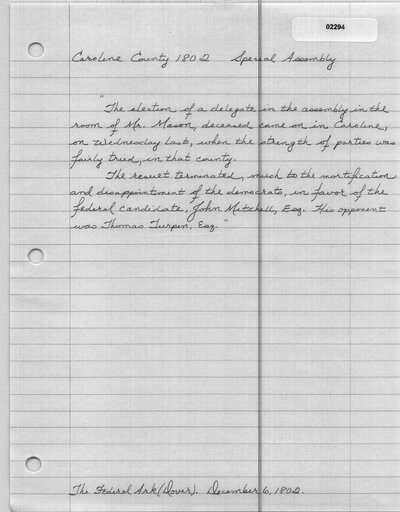 02294
Caroline County 1802 Special Assembly
"The election of a delegate in the assembly in the
room of Mr. Mason, deceased came on in Caroline,
on Wednesday last, when the strength of parties was
fairly tried, in that county.
The result terminated, much to the mortification
and disappointment of the democrats, in favor of the
federal candidate, John Mitchell, Esq. His opponent
was Thomas Turpin, Esq."
The Federal Ark (Dover). December 6, 1802.